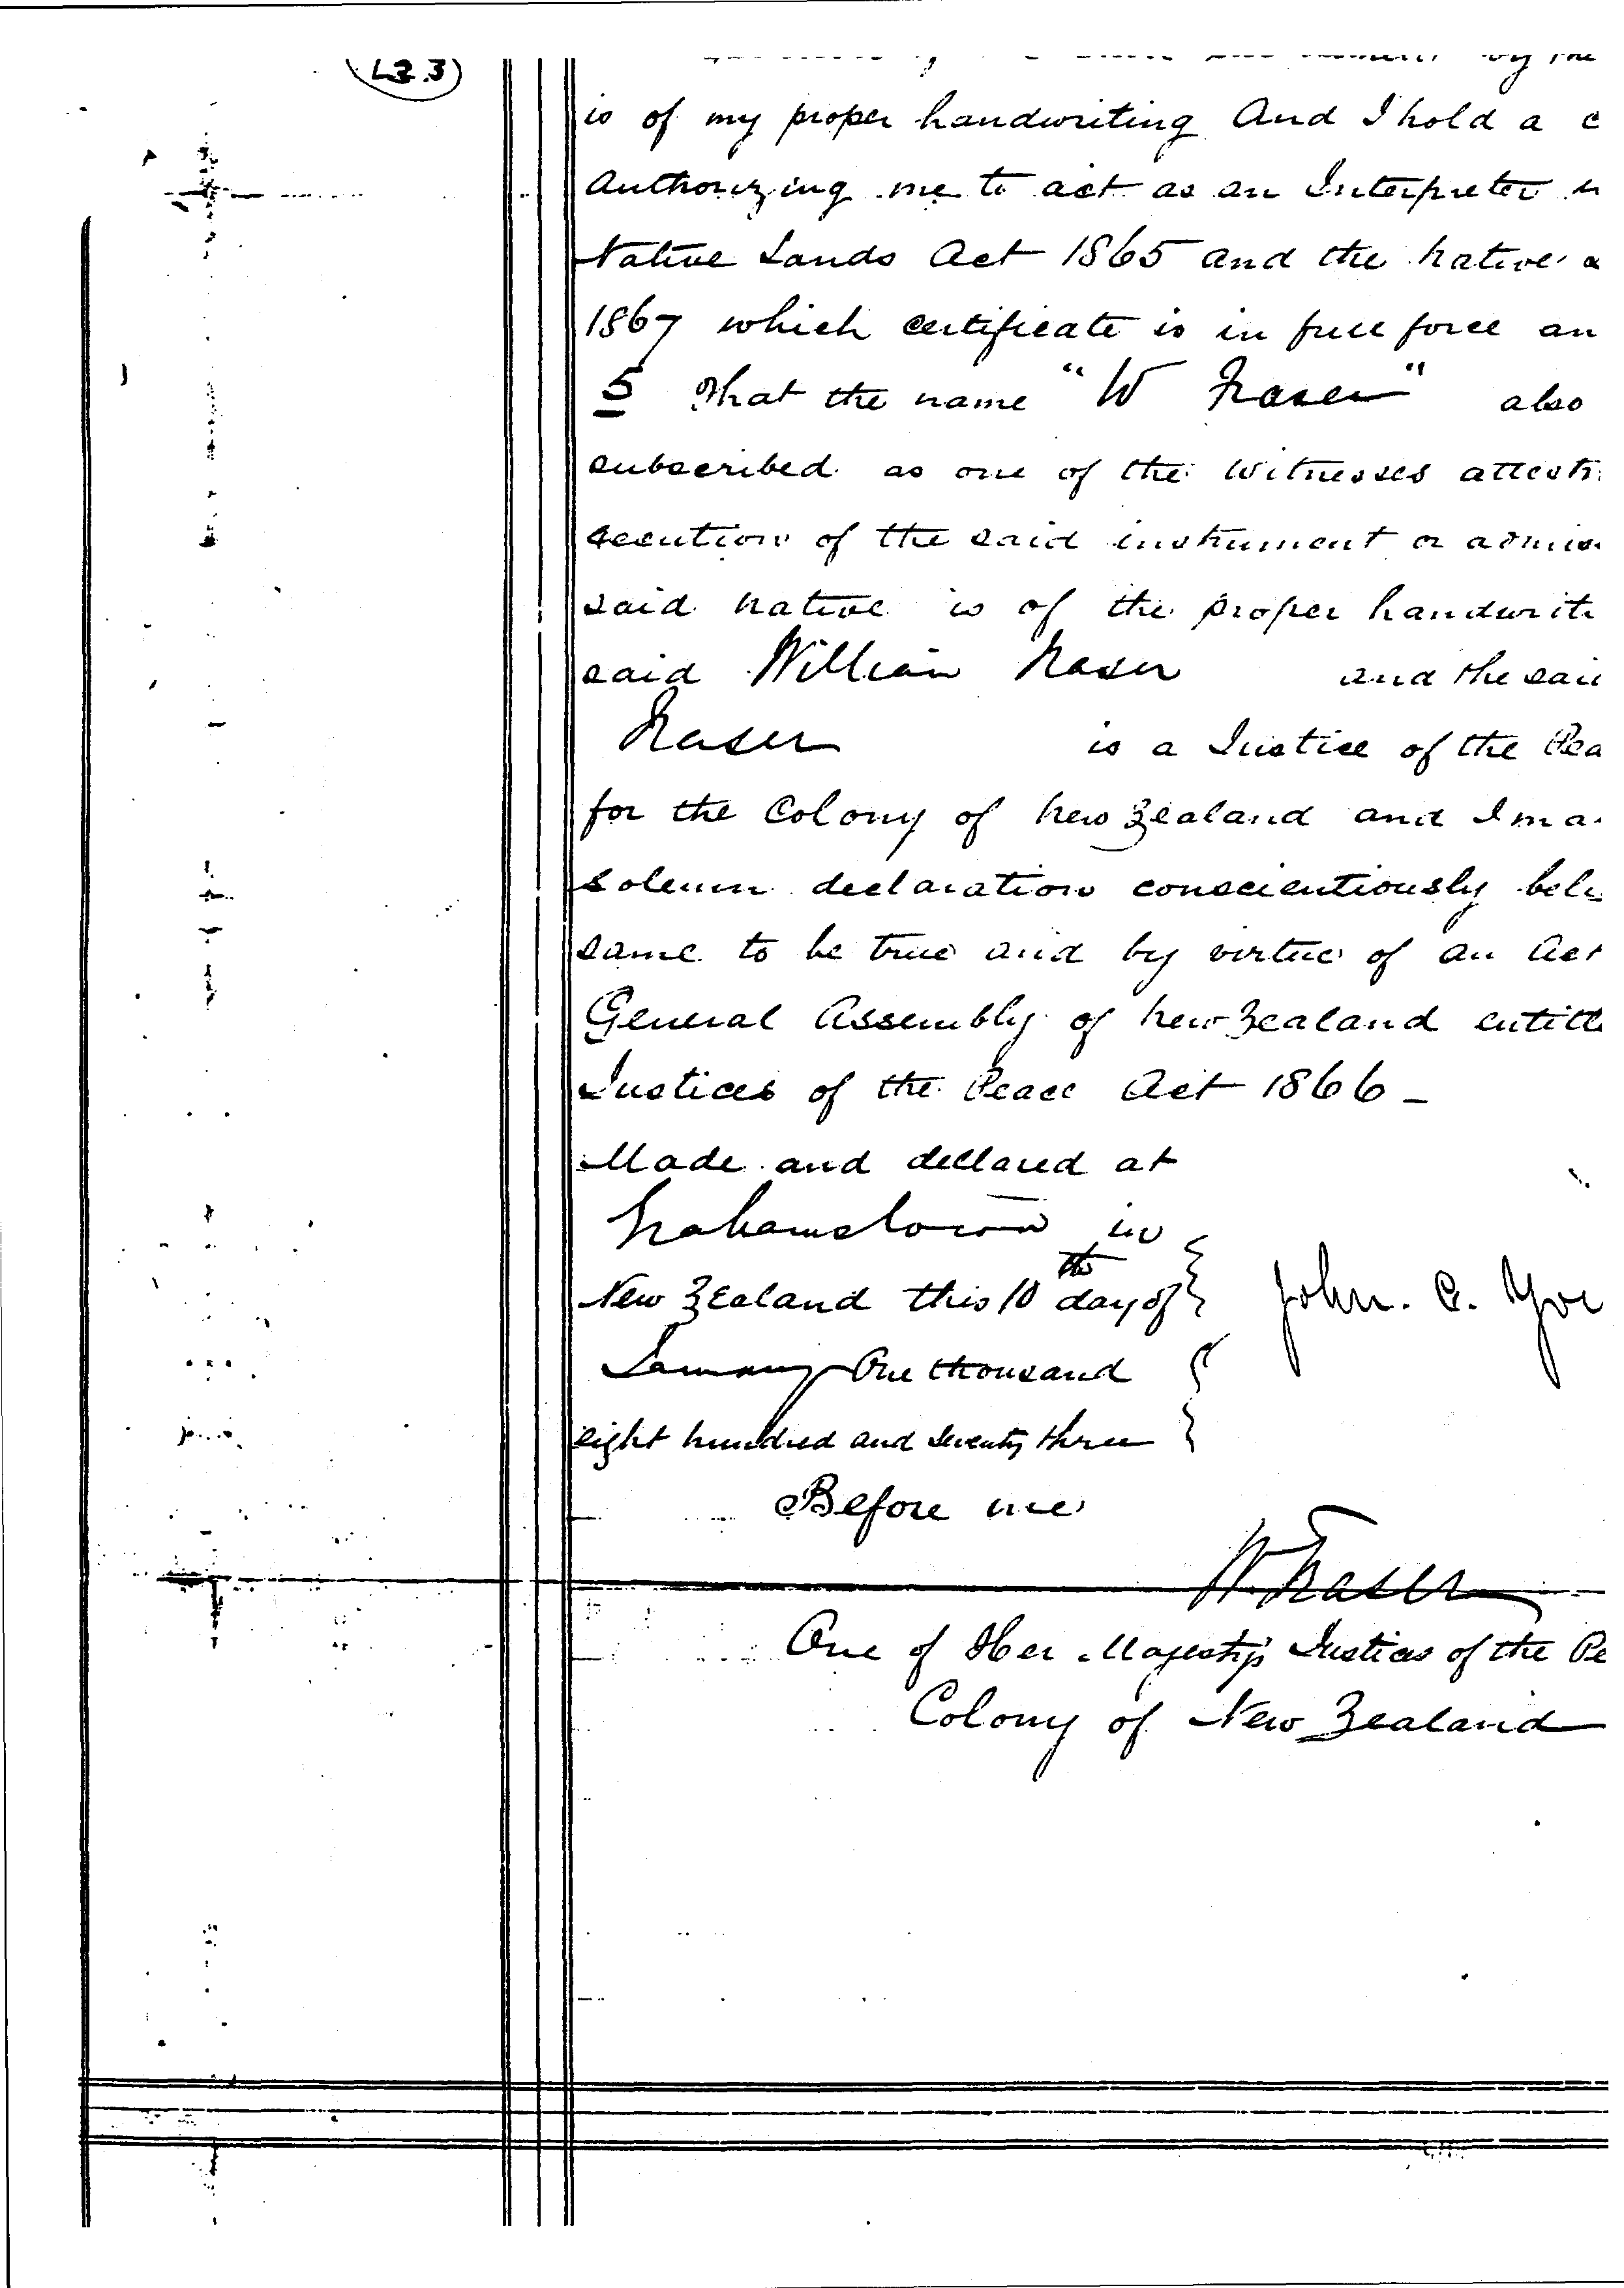 (L3.3)
by the
is of my proper handwriting And I hold a c
Authorizing me to act as an Interpreter
Native Lands Act 1865 and the native
1867 which certificate is in full force an
5 That the name "W Fraser" also
subscribed as one of the Witnesses attesti
execution of the said instrument or admis
said native is of the proper handwriti
said William Fraser and the said
Fraser is a Justice of the Pea
for the Colony of New Zealand and I ma
solemn declaration conscientiously beli
same to be true and by virtue of an Act
General Assembly of New Zealand entitl
Justices of the Peace Act 1866 -
Made and declared at
Grahamstown in
New Zealand this 10th day of
January One thousand
eight hundred and seventy three
John. C. You
Before me
W. Fraser
One of Her Majesty's Justices of the Pe
Colony of New Zealand